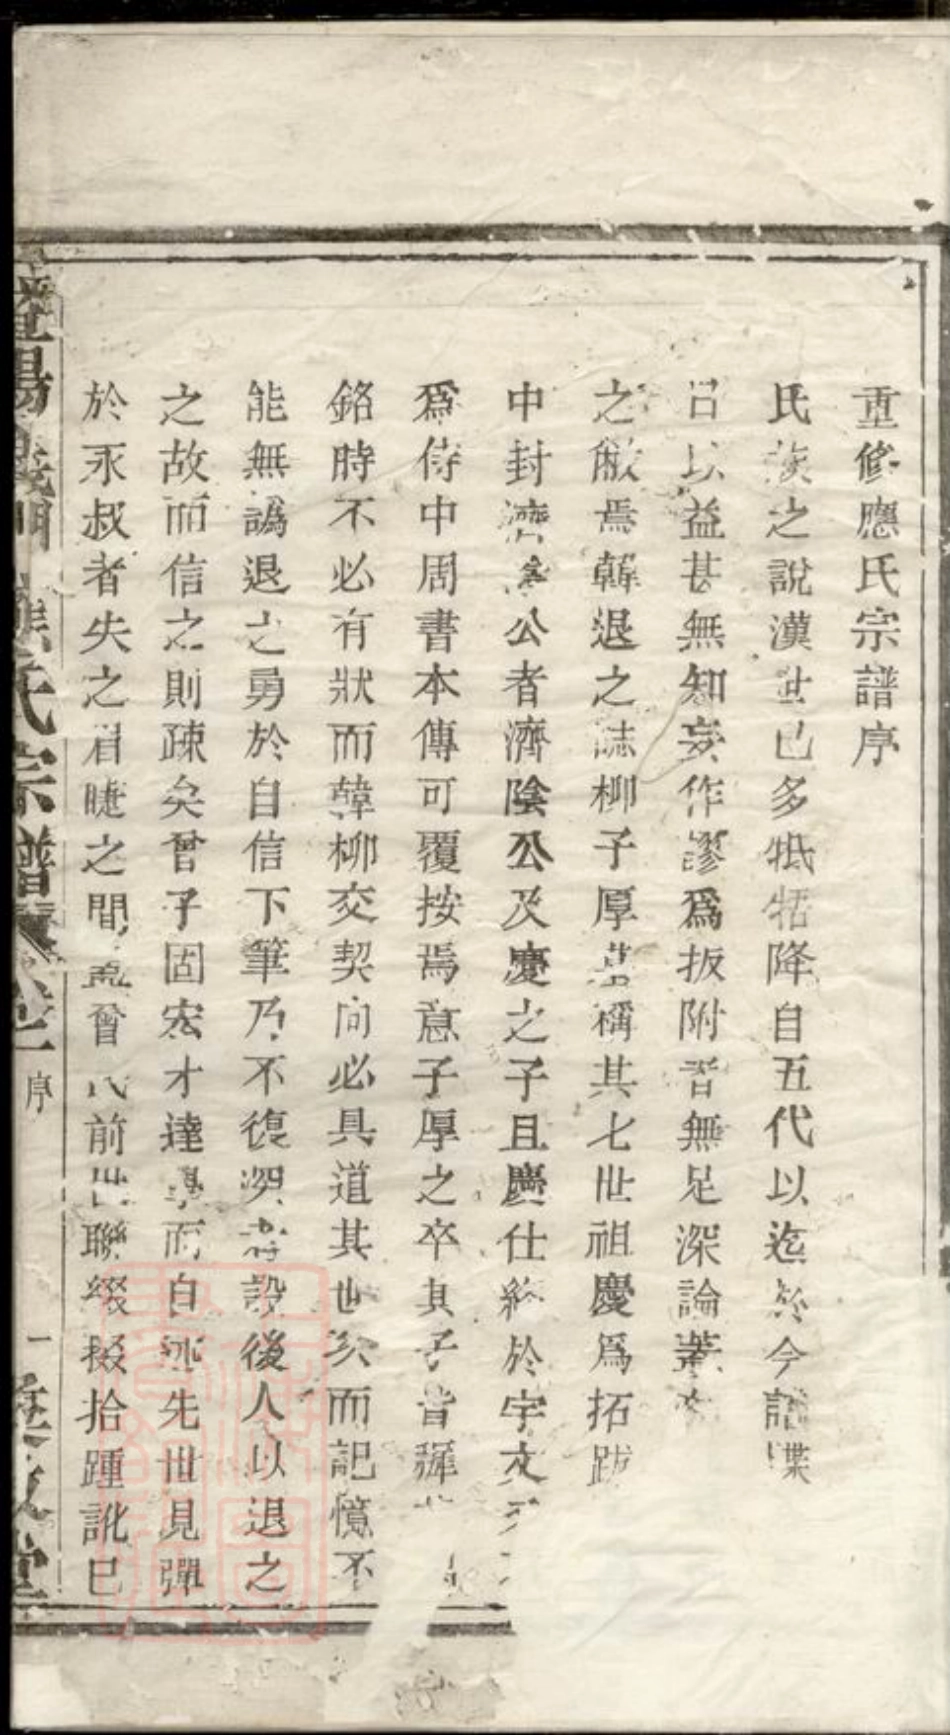 重修應氏宗譜序
氏族之說漢世已多牴牾降自五代以迄於今譜牒
呂以益甚無知妄作謬爲扳附者無足深論
之敝焉韓退之誌柳子厚墓稱其七世祖慶爲拓跋
中封濟陰公者濟陰公及慶之子且慶仕終於宇文
爲侍中周書本傳可覆按焉意子厚之卒其子皆穉
銘時不必有狀而韓柳交契向必具道其世次而記憶不
能無譌退之勇於自信下筆乃不復深考設後人以退之
之故而信之則疎矣曾子固宏才達學而自述先世見彈
於永叔者失之眉睫之間 曾氏前世聯綴掇拾踵訛已
氏宗譜
序
一